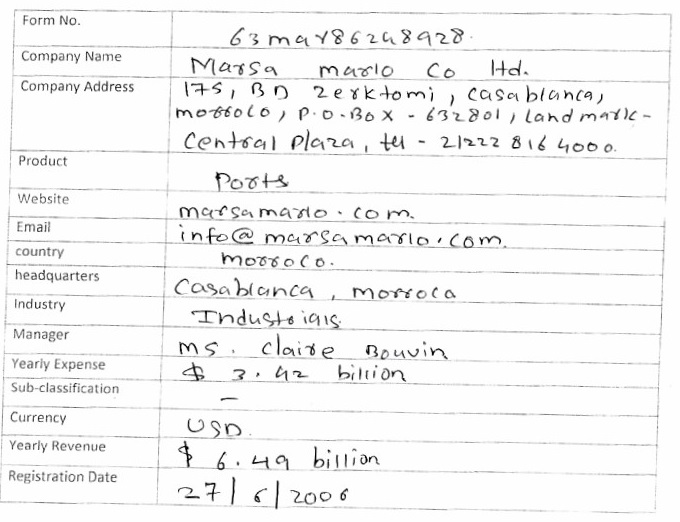 Form No.
63mar86248928.
Company Name
Marsa marlo Co ltd.
Company Address
175, BD zerktomi, Casablanca,
morroco, P.O.Box - 632801, Landmark -
Central Plaza, tel - 21222 816 4000.
Product
Ports
Website
marsamarlo.com.
Email
info@marsamarlo.com.
country
morroco.
headquarters
Casablanca, morroca
Industry
Industrials
Manager
ms. Claire Bouvin
Yearly Expense
$ 3.42 billion
Sub-classification
-
Currency
USD.
Yearly Revenue
$ 6.49 billion
Registration Date
27/6/2006